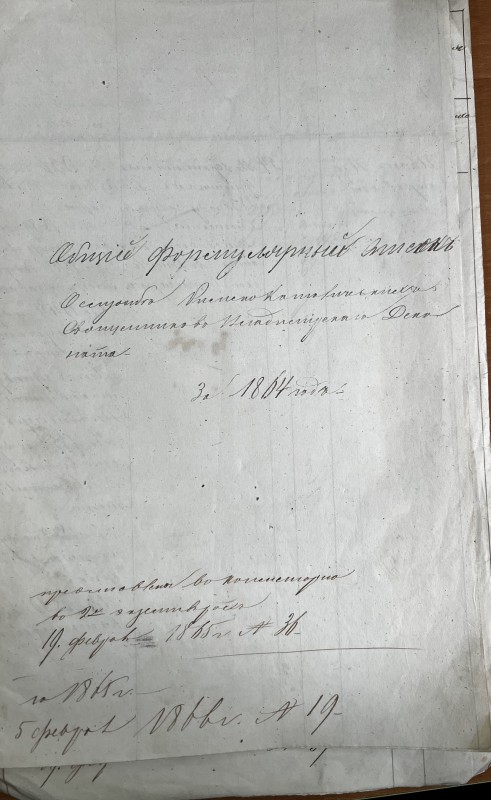 Общій Формулярный Списокъ
О службѣ Римско Католическихъ
Священниковъ Дека
ната.
За 1864 годъ.
представленъ въ консисторію
въ 2хъ экземплярахъ
19. феврал 1865 г. № 36.
за 1865 г.
5 феврал 1866 г. № 19